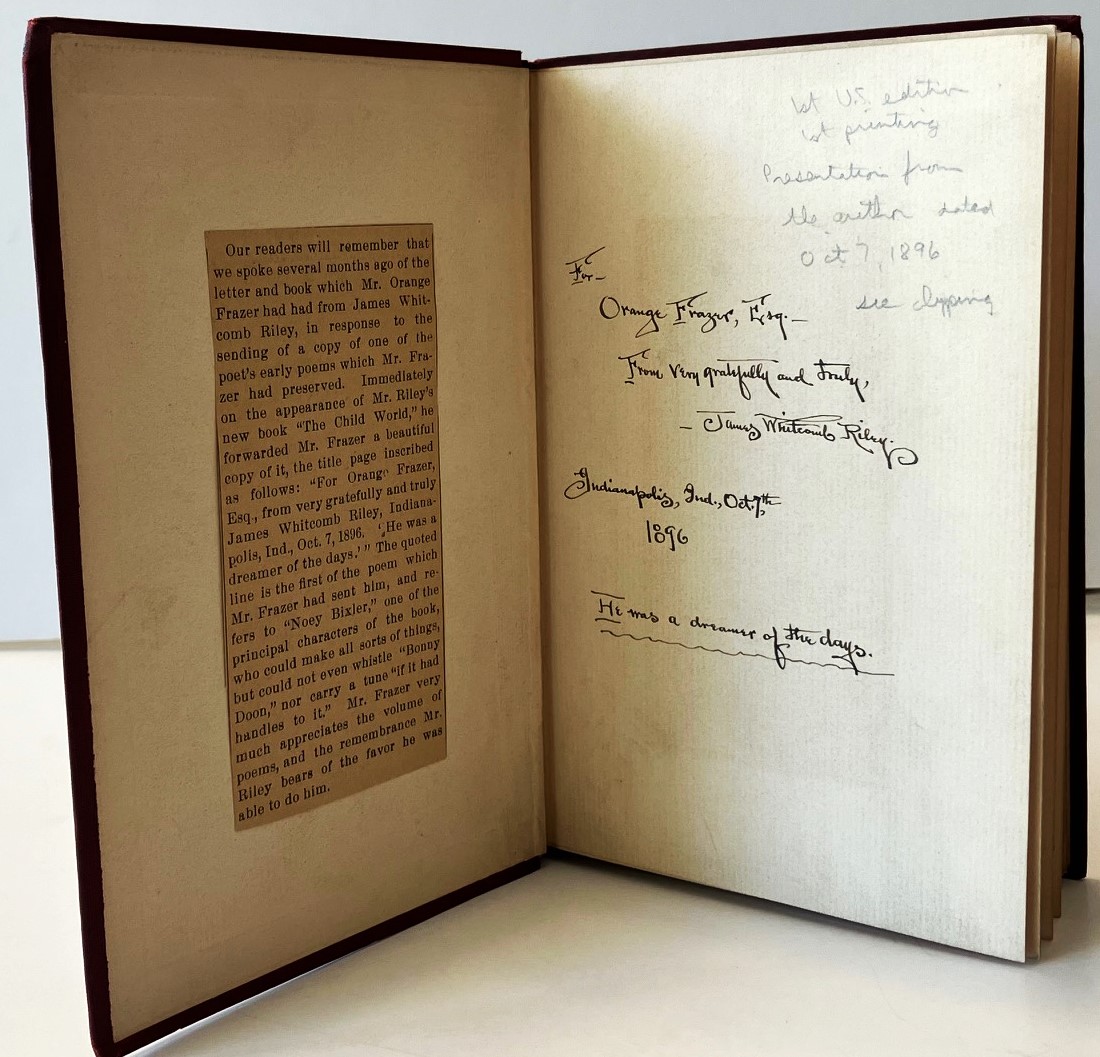 Our readers will remember that
we spoke several months ago of the
letter and book which Mr. Orange
Frazer had had from James Whit-
comb Riley, in response to the
sending of a copy of one of the
poet's early poems which Mr. Fra-
zer had preserved. Immediately
on the appearance of Mr. Riley's
new book "The Child World," he
forwarded Mr. Frazer a beautiful
copy of it, the title page inscribed
as follows: "For Orange Frazer,
Esq., from very gratefully and truly
James Whitcomb Riley, Indiana-
polis, Ind., Oct. 7, 1896. 'He was a
dreamer of the days.'" The quoted
line is the first of the poem which
Mr. Frazer had sent him, and re-
fers to "Noey Bixler," one of the
principal characters of the book,
who could make all sorts of things,
but could not even whistle "Bonny
Doon," nor carry a tune "if it had
handles to it." Mr. Frazer very
much appreciates the volume of
poems, and the remembrance Mr.
Riley bears of the favor he was
able to do him.
1st U.S. edition
1st printing
Presentation from
the author dated
Oct 7, 1896
see clipping
For—
Orange Frazer, Esq.—
From very gratefully and truly,
— James Whitcomb Riley.
Indianapolis, Ind., Oct. 7th,
1896
He was a dreamer of the days.